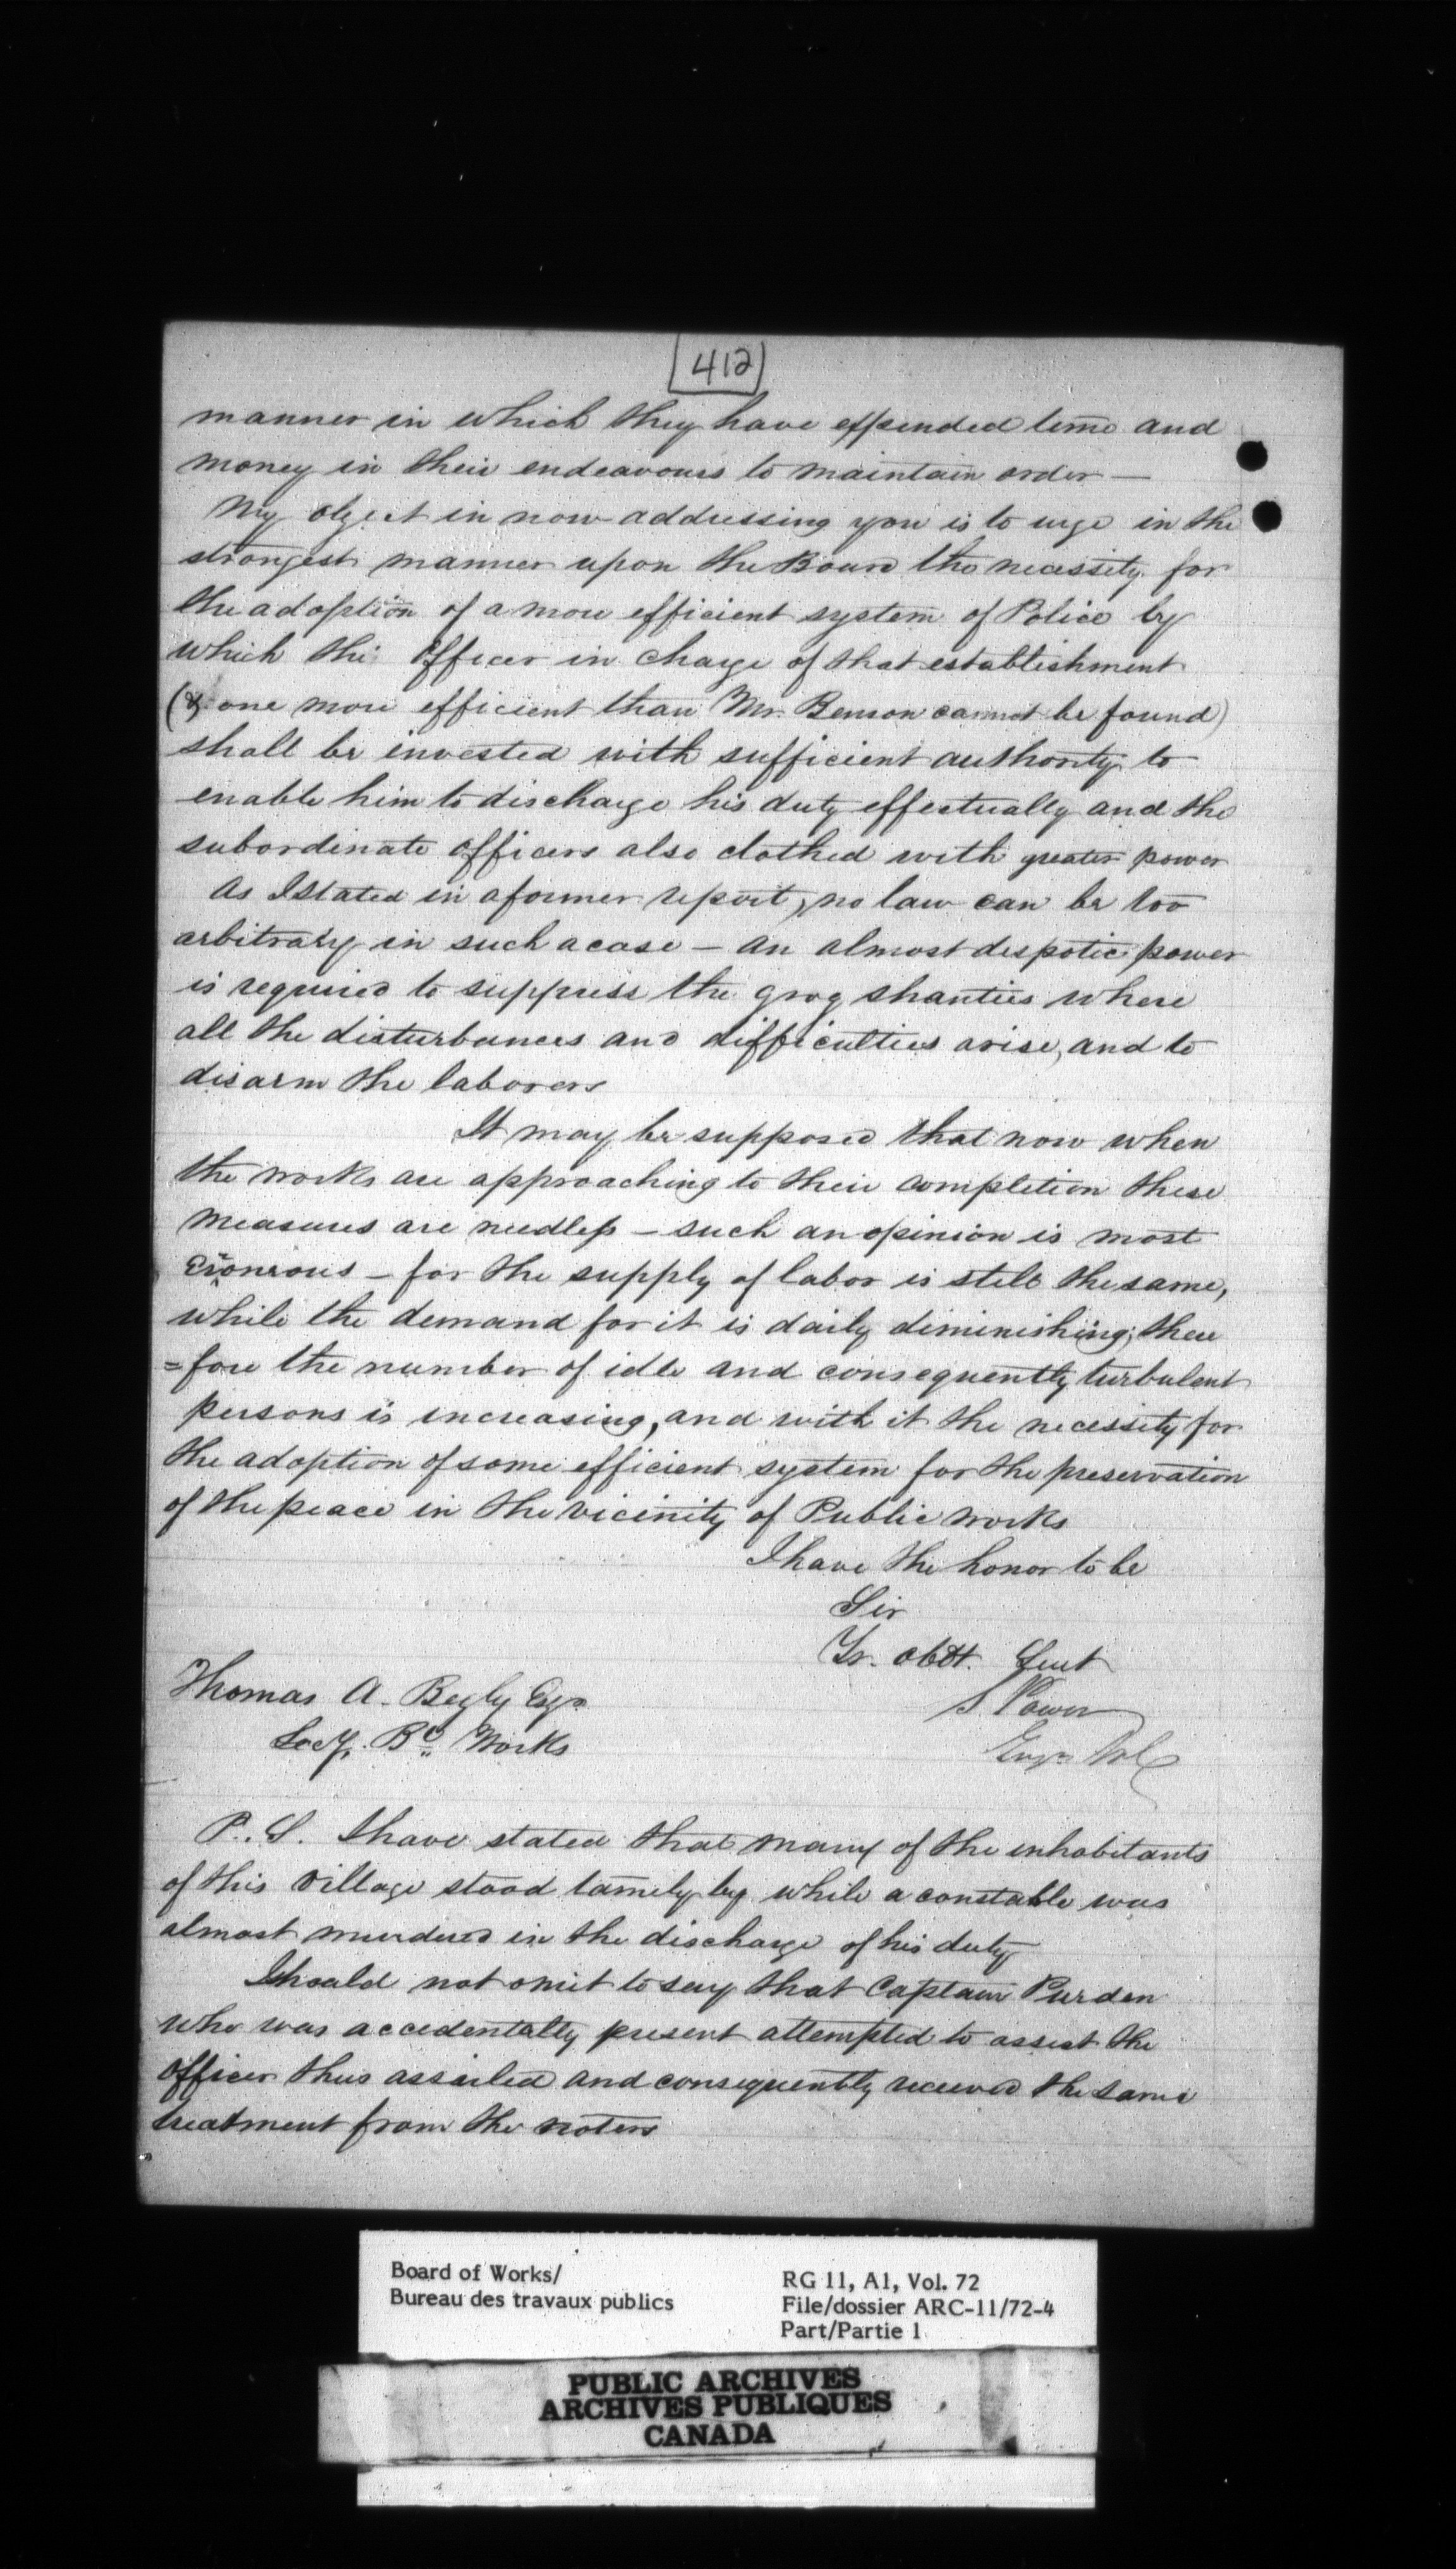 412
manner in which they have expended time and
money in their endeavours to maintain order —
My object in now addressing you is to urge in the
strongest manner upon the Board the necessity for
the adoption of a more efficient system of Police by
which the Officer in charge of that establishment
(& one more efficient than Mr. Benson cannot be found)
shall be invested with sufficient authority to
enable him to discharge his duty effectually and the
subordinate officers also clothed with greater power
As I stated in a former report, no law can be too
arbitrary in such a case — an almost despotic power
is required to suppress the grog shanties where
all the disturbances and difficulties arise, and to
disarm the laborers
It may be supposed that now when
the works are approaching to their completion these
measures are needless — such an opinion is most
erroneous — for the supply of labor is still the same,
while the demand for it is daily diminishing; there
=fore the number of idle and consequently turbulent
persons is increasing, and with it the necessity for
the adoption of some efficient system for the preservation
of the peace in the vicinity of Public works
I have the honor to be
Sir
Yr. obdt. Servt
S Power
Engr. W C
Thomas A. Begly Esqr.
Secy. Bd. Works
P.S. I have stated that many of the inhabitants
of this village stood tamely by while a constable was
almost murdered in the discharge of his duty
I should not omit to say that Captain Purden
who was accedentally present attempted to assist the
officer thus assailed and consequently received the same
treatment from the rioters
Board of Works/
Bureau des travaux publics
RG 11, A1, Vol. 72
File/dossier ARC-11/72-4
Part/Partie 1
PUBLIC ARCHIVES
ARCHIVES PUBLIQUES
CANADA